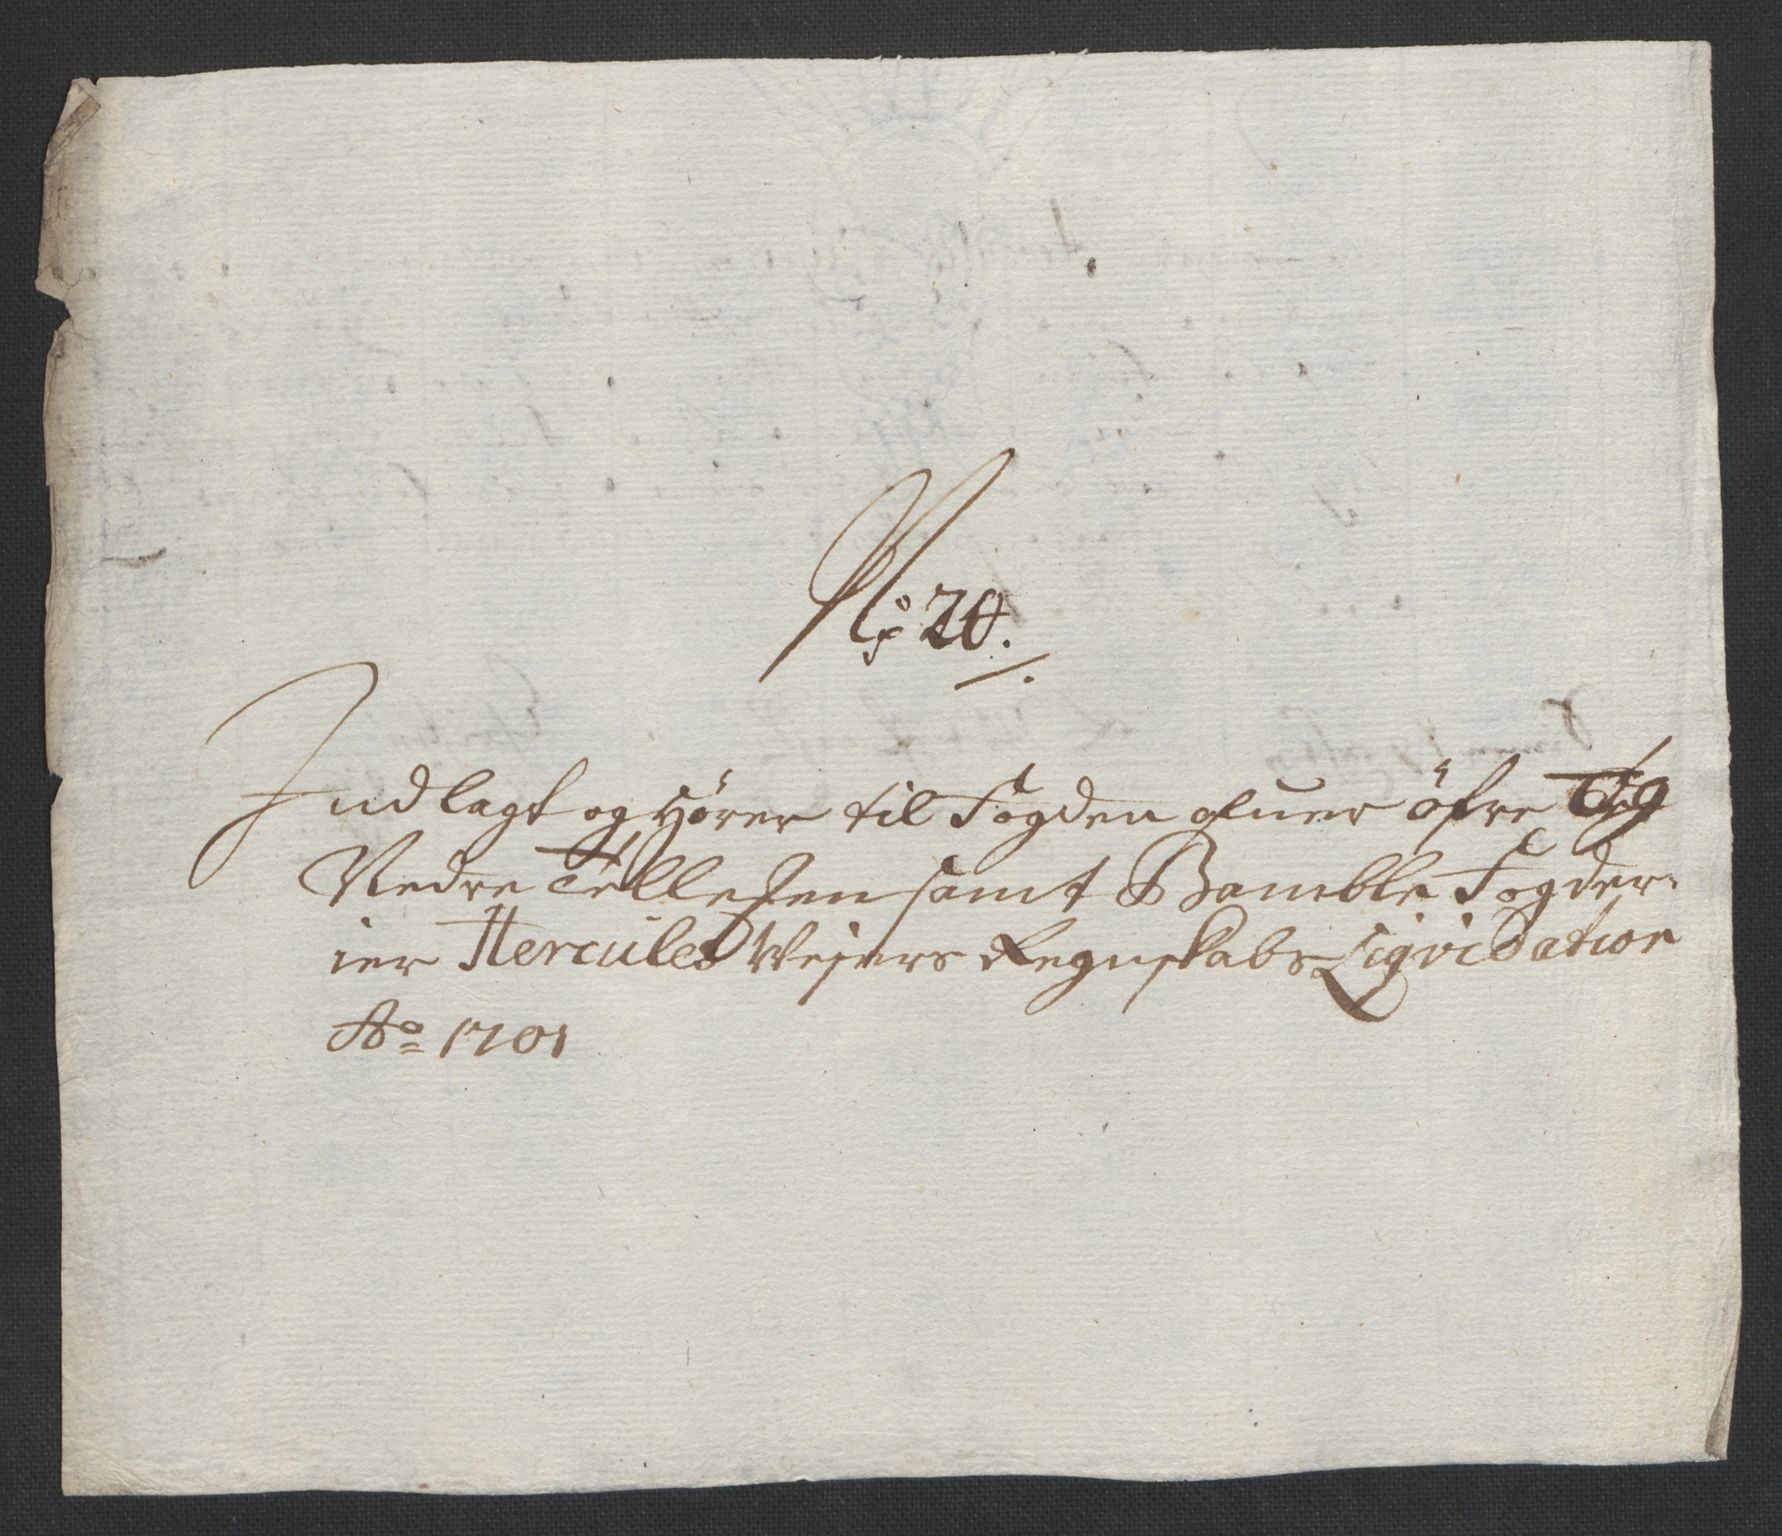 No 20.
Indlagt og Hører til Fogden ofuer öfre og
Nedre Tellemen samt Bamble Fogder
ier Hercules Weiers Regnskabs Liqvidation
Ao 1701